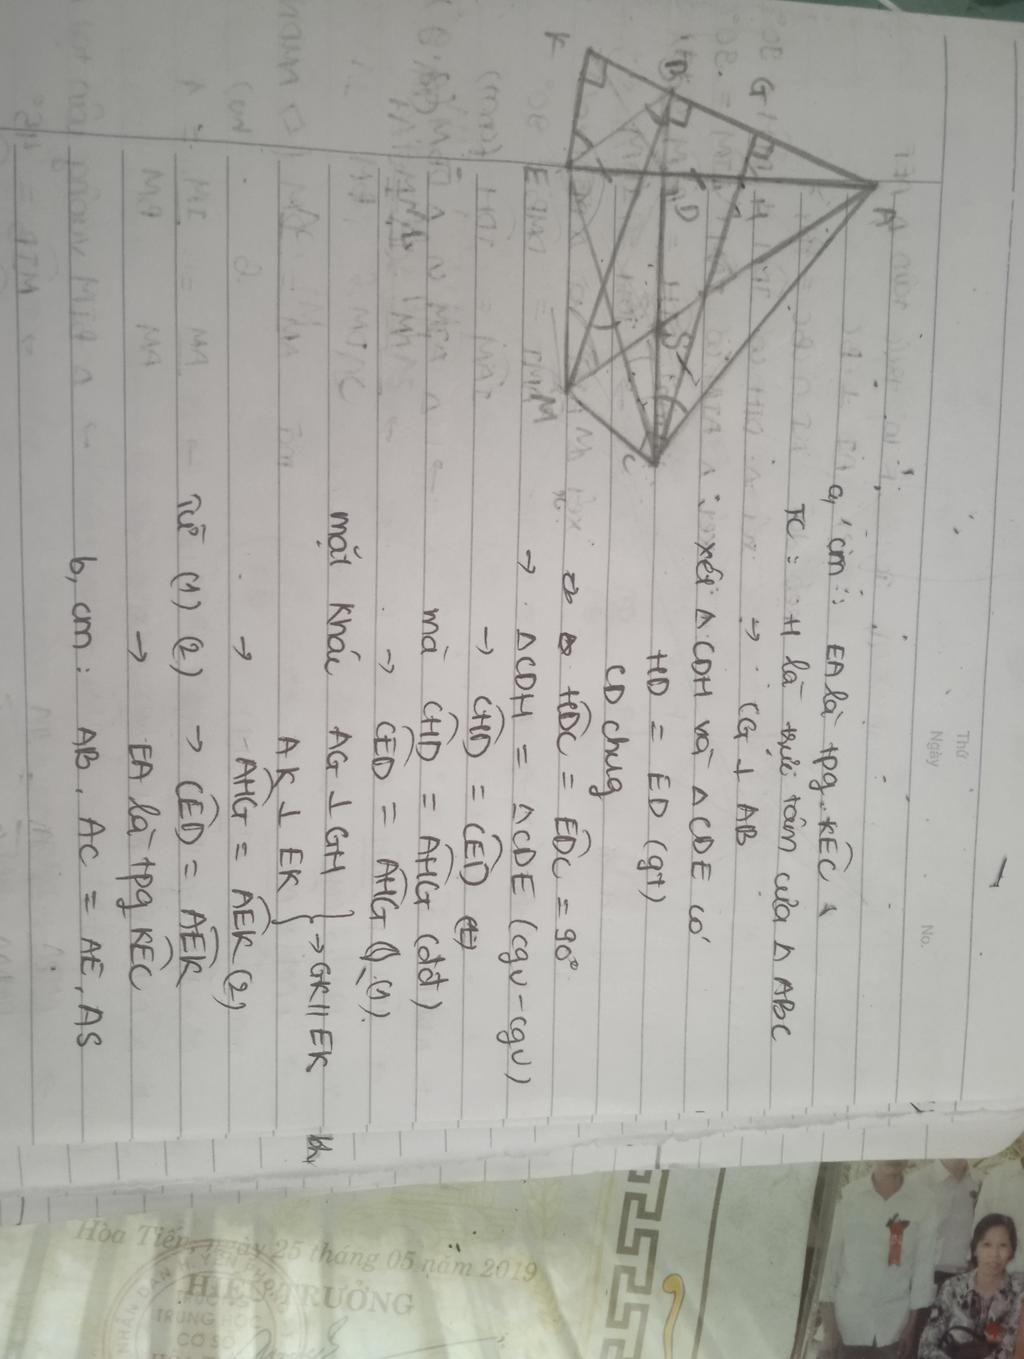 Thứ
Ngày
No.
a, cm: EA là tpg KEC
TC: H là trực tâm của Δ ABC
→ CG ⊥ AB
xét Δ CDH và Δ CDE có
HD = ED (gt)
CD chung
HDC = EDC = 90°
→ Δ CDH = Δ CDE (cgv - cgv)
→ CHD = CED
mà CHD = AHG (đđ)
→ CED = AHG (1).
mặt khác AG ⊥ GH
AK ⊥ EK } → GK // EK
→ AHG = AEK (2)
Từ (1) (2) → CED = AEK
→ EA là tpg KEC
b, cm: AB. AC = AE. AS
A
G
H
B
D
S
C
K
E
M
Hòa Tiến, ngày 25 tháng 05 năm 2019
HIỆU TRƯỞNG
TRUNG HỌC
CƠ SỞ